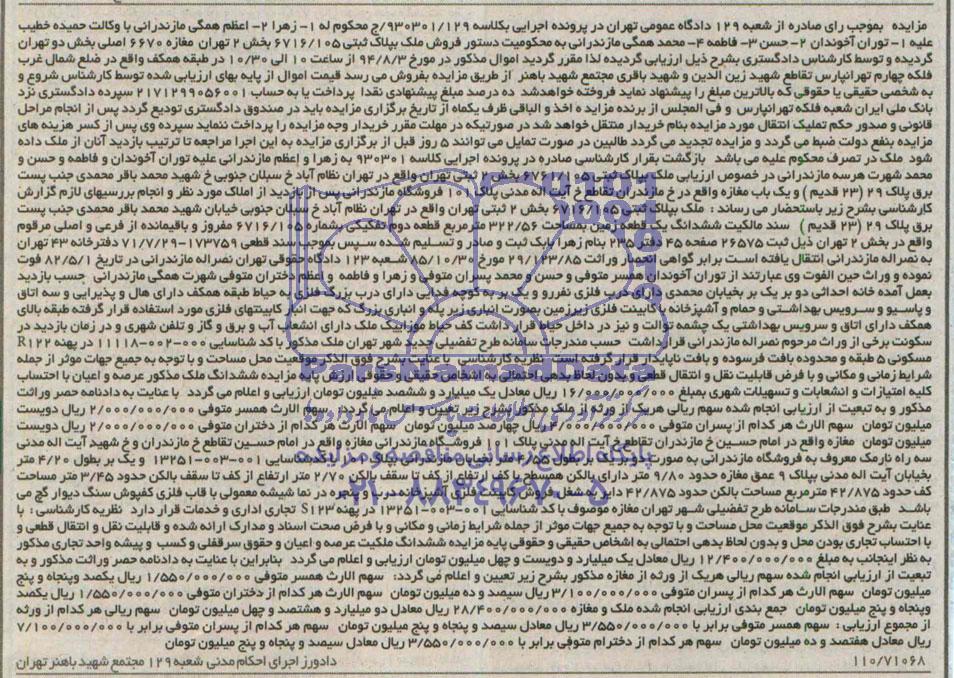 مزایده بموجب رای صادره از شعبه ۱۲۹ دادگاه عمومی تهران در پرونده اجرایی بکلاسه ۹۳۰۳۰۱/۱۲۹/ج محکوم له ۱- زهرا ۲- اعظم همگی مازندرانی با وکالت حمیده خطیب
علیه ۱- توران آخوندان ۲- حسن ۳- فاطمه ۴- محمد همگی مازندرانی به محکومیت دستور فروش ملک بپلاک ثبتی ۶۷۱۶/۱۰۵ بخش ۲ تهران مغازه ۶۶۷۰ اصلی بخش دو تهران
گردیده و توسط کارشناس دادگستری بشرح ذیل ارزیابی گردیده لذا مقرر گردید اموال مذکور در مورخ ۹۴/۸/۳ از ساعت ۱۰ الی ۱۰/۳۰ در طبقه همکف واقع در ضلع شمال غرب
فلکه چهارم تهرانپارس تقاطع شهید زین الدین و شهید باقری مجتمع شهید باهنر از طریق مزایده بفروش می رسد قیمت اموال از پایه بهای ارزیابی شده توسط کارشناس شروع و
به شخصی حقیقی یا حقوقی که بالاترین مبلغ را پیشنهاد نماید فروخته خواهدشد ده درصد مبلغ پیشنهادی نقدا پرداخت یا به حساب ۲۱۷۱۲۹۹۰۵۶۰۰۱ سپرده دادگستری نزد
بانک ملی ایران شعبه فلکه تهرانپارس و فی المجلس از برنده مزایده اخذ و الباقی ظرف یکماه از تاریخ برگزاری مزایده باید در صندوق دادگستری تودیع گردد پس از انجام مراحل
قانونی و صدور حکم تملیک انتقال مورد مزایده بنام خریدار منتقل خواهد شد در صورتیکه در مهلت مقرر خریدار وجه مزایده را پرداخت ننماید سپرده وی پس از کسر هزینه های
مزایده بنفع دولت ضبط می گردد و مزایده تجدید می گردد طالبین در صورت تمایل می توانند ۵ روز قبل از برگزاری مزایده به این اجرا مراجعه تا ترتیب بازدید آنان از ملک داده
شود ملک در تصرف محکوم علیه می باشد بازگشت بقرار کارشناسی صادره در پرونده اجرایی کلاسه ۹۳۰۳۰۱ به زهرا و اعظم مازندرانی علیه توران آخوندان و فاطمه و حسن و
محمد شهرت هرسه مازندرانی در خصوص ارزیابی ملک بپلاک ثبتی ۶۷۱۶/۱۰۵ بخش ۲ ثبتی تهران واقع در تهران نظام آباد خ سبلان جنوبی خ شهید محمد باقر محمدی جنب پست
برق پلاک ۲۹ (۲۳ قدیم) و یک باب مغازه واقع در خ مازندران تقاطع خ آیت اله مدنی پلاک ۱۰۱ فروشگاه مازندرانی پس از بازدید از املاک مورد نظر و انجام بررسیهای لازم گزارش
کارشناسی بشرح زیر باستحضار می رساند: ملک بپلاک ثبتی ۶۷۱۶/۱۰۵ بخش ۲ ثبتی تهران واقع در تهران نظام آباد خ سبلان جنوبی خیابان شهید محمد باقر محمدی جنب پست
برق پلاک ۲۹ (۲۳ قدیم) سند مالکیت ششدانگ یک قطعه زمین بمساحت ۳۲۲/۵۶ مترمربع قطعه دوم تفکیکی بشماره ۶۷۱۶/۱۰۵ مفروز و باقیمانده از فرعی و اصلی مرقوم
واقع در بخش ۲ تهران ذیل ثبت ۲۶۵۷۵ صفحه ۴۵ دفتر ۲۳۵ بنام زهرا بابک ثبت و صادر و تسلیم شده سپس بموجب سند قطعی ۱۷۳۷۵۹-۷۱/۷/۲۹ دفترخانه ۴۳ تهران
به نصراله مازندرانی انتقال یافته است برابر گواهی انحصار وراثت ۲۹/۱۲۳/۸۵ مورخ ۸۵/۱۰/۳۰ شعبه ۱۲۳ دادگاه حقوقی تهران نصراله مازندرانی در تاریخ ۸۲/۵/۱ فوت
نموده و وراث حین الفوت وی عبارتند از توران آخوندان همسر متوفی و حسن و محمد پسران متوفی و زهرا و فاطمه و اعظم دختران متوفی شهرت همگی مازندرانی حسب بازدید
بعمل آمده خانه احداثی دو بر یک بر بخیابان محمدی دارای درب فلزی نفررو و یک بر به کوچه فدایی دارای درب بزرگ فلزی به حیاط طبقه همکف دارای هال و پذیرایی و سه اتاق
و پاسیو و سرویس بهداشتی و حمام و آشپزخانه و کابینت فلزی زیرزمین بصورت انباری زیر پله و انباری بزرگ که جهت انبار کابینتهای فلزی مورد استفاده قرار گرفته طبقه بالای
همکف دارای اتاق و سرویس بهداشتی یک چشمه توالت و نیز در داخل حیاط قرار داشت کف حیاط موزاییک ملک دارای انشعاب آب و برق و گاز و تلفن شهری و در زمان بازدید در
سکونت برخی از وراث مرحوم نصراله مازندرانی قرارداشت حسب مندرجات سامانه طرح تفضیلی جدید شهر تهران ملک مذکور با کد شناسایی ۰۰۰-۰۰۲-۱۱۱۱۸ در پهنه R۱۲۲
مسکونی ۵ طبقه و محدوده بافت فرسوده و بافت ناپایدار قرار گرفته است نظریه کارشناسی با عنایت بشرح فوق الذکر موقعیت محل مساحت و با توجه به جمیع جهات موثر از جمله
شرایط زمانی و مکانی و با فرض قابلیت نقل و انتقال قطعی و بدون لحاظ بدهی احتمالی به اشخاص حقیقی و حقوقی ارزش پایه مزایده ششدانگ ملک مذکور عرصه و اعیان با احتساب
کلیه امتیازات و انشعابات و تسهیلات شهری بمبلغ ۱۶/۰۰۰/۰۰۰/۰۰۰ ریال معادل یک میلیارد و ششصد میلیون تومان ارزیابی و اعلام می گردد با عنایت به دادنامه حصر وراثت
مذکور و به تبعیت از ارزیابی انجام شده سهم ریالی هریک از ورثه از ملک مذکور بشرح زیر تعیین و اعلام می گردد سهم الارث همسر متوفی ۲/۰۰۰/۰۰۰/۰۰۰ ریال دویست
میلیون تومان سهم الارث هر کدام از پسران متوفی ۴/۰۰۰/۰۰۰/۰۰۰ ریال چهارصد میلیون تومان سهم الارث هر کدام از دختران متوفی ۲/۰۰۰/۰۰۰/۰۰۰ ریال دویست
میلیون تومان مغازه واقع در امام حسین خ مازندران تقاطع خ آیت اله مدنی پلاک ۱۰۱ فروشگاه مازندرانی مغازه واقع در امام حسین تقاطع خ مازندران و خ شهید آیت اله مدنی
سه راه نارمک معروف به فروشگاه مازندرانی به صورت دو بر یک بر بطول بخیابان مازندرانی پلاک با کد شناسایی ۰۰۱-۰۰۳-۱۳۲۵۱ و یک بر بطول ۴/۲۰ متر
بخیابان آیت اله مدنی بپلاک ۹ عمق مغازه حدود ۹/۸۰ متر دارای بالکن همسطح با کف ارتفاع از کف تا سقف بالکن ۲/۷۰ متر ارتفاع از کف تا سقف بالکن حدود ۳/۴۵ متر مساحت
کف حدود ۴۲/۸۷۵ مترمربع مساحت بالکن حدود ۴۲/۸۷۵ دایر به شغل فروش کابینت فلزی آشپزخانه درب و پنجره در نما شیشه معمولی با قاب فلزی کفپوش سنگ دیوار گچ می
باشد طبق مندرجات سامانه طرح تفضیلی شهر تهران مغازه موصوف با کد شناسایی ۰۰۱-۰۰۳-۱۳۲۵۱ در پهنه S۱۲۳ تجاری اداری و خدمات قرار دارد نظریه کارشناسی: با
عنایت بشرح فوق الذکر موقعیت محل مساحت و با توجه به جمیع جهات موثر از جمله شرایط زمانی و مکانی و با فرض صحت اسناد و مدارک ارائه شده و قابلیت نقل و انتقال قطعی و
با احتساب تجاری بودن محل و بدون لحاظ بدهی احتمالی به اشخاص حقیقی و حقوقی پایه مزایده ششدانگ ملکیت عرصه و اعیان و حقوق سرقفلی و کسب و پیشه واحد تجاری مذکور
به نظر اینجانب به مبلغ ۱۲/۴۰۰/۰۰۰/۰۰۰ ریال معادل یک میلیارد و دویست و چهل میلیون تومان ارزیابی و اعلام می گردد بنابراین با عنایت به دادنامه حصر وراثت مذکور و به
تبعیت از ارزیابی انجام شده سهم ریالی هریک از ورثه از مغازه مذکور بشرح زیر تعیین و اعلام می گردد: سهم الارث همسر متوفی ۱/۵۵۰/۰۰۰/۰۰۰ ریال یکصد وپنجاه و پنج
میلیون تومان سهم الارث هر کدام از پسران متوفی ۳/۱۰۰/۰۰۰/۰۰۰ ریال سیصد و ده میلیون تومان سهم الارث هر کدام از دختران متوفی ۱/۵۵۰/۰۰۰/۰۰۰ ریال یکصد
وپنجاه و پنج میلیون تومان جمع بندی ارزیابی انجام شده ملک و مغازه ۲۸/۴۰۰/۰۰۰/۰۰۰ ریال معادل دو میلیارد و هشتصد و چهل میلیون تومان سهم ریالی هر کدام از ورثه
از مجموع ارزیابی: سهم همسر متوفی برابر با ۳/۵۵۰/۰۰۰/۰۰۰ ریال معادل سیصد و پنجاه و پنج میلیون تومان سهم هر کدام از پسران متوفی برابر با ۷/۱۰۰/۰۰۰/۰۰۰
ریال معادل هفتصد و ده میلیون تومان سهم هر کدام از دخترام متوفی برابر با ۳/۵۵۰/۰۰۰/۰۰۰ ریال معادل سیصد و پنجاه و پنج میلیون تومان
۱۱۰/۷۱۰۶۸ دادورز اجرای احکام مدنی شعبه ۱۲۹ مجتمع شهید باهنر تهران
پایگاه اطلاع رسانی مناقصه و مزایده
۰۲۱-۸۸۳۴۹۶۷۰-۵